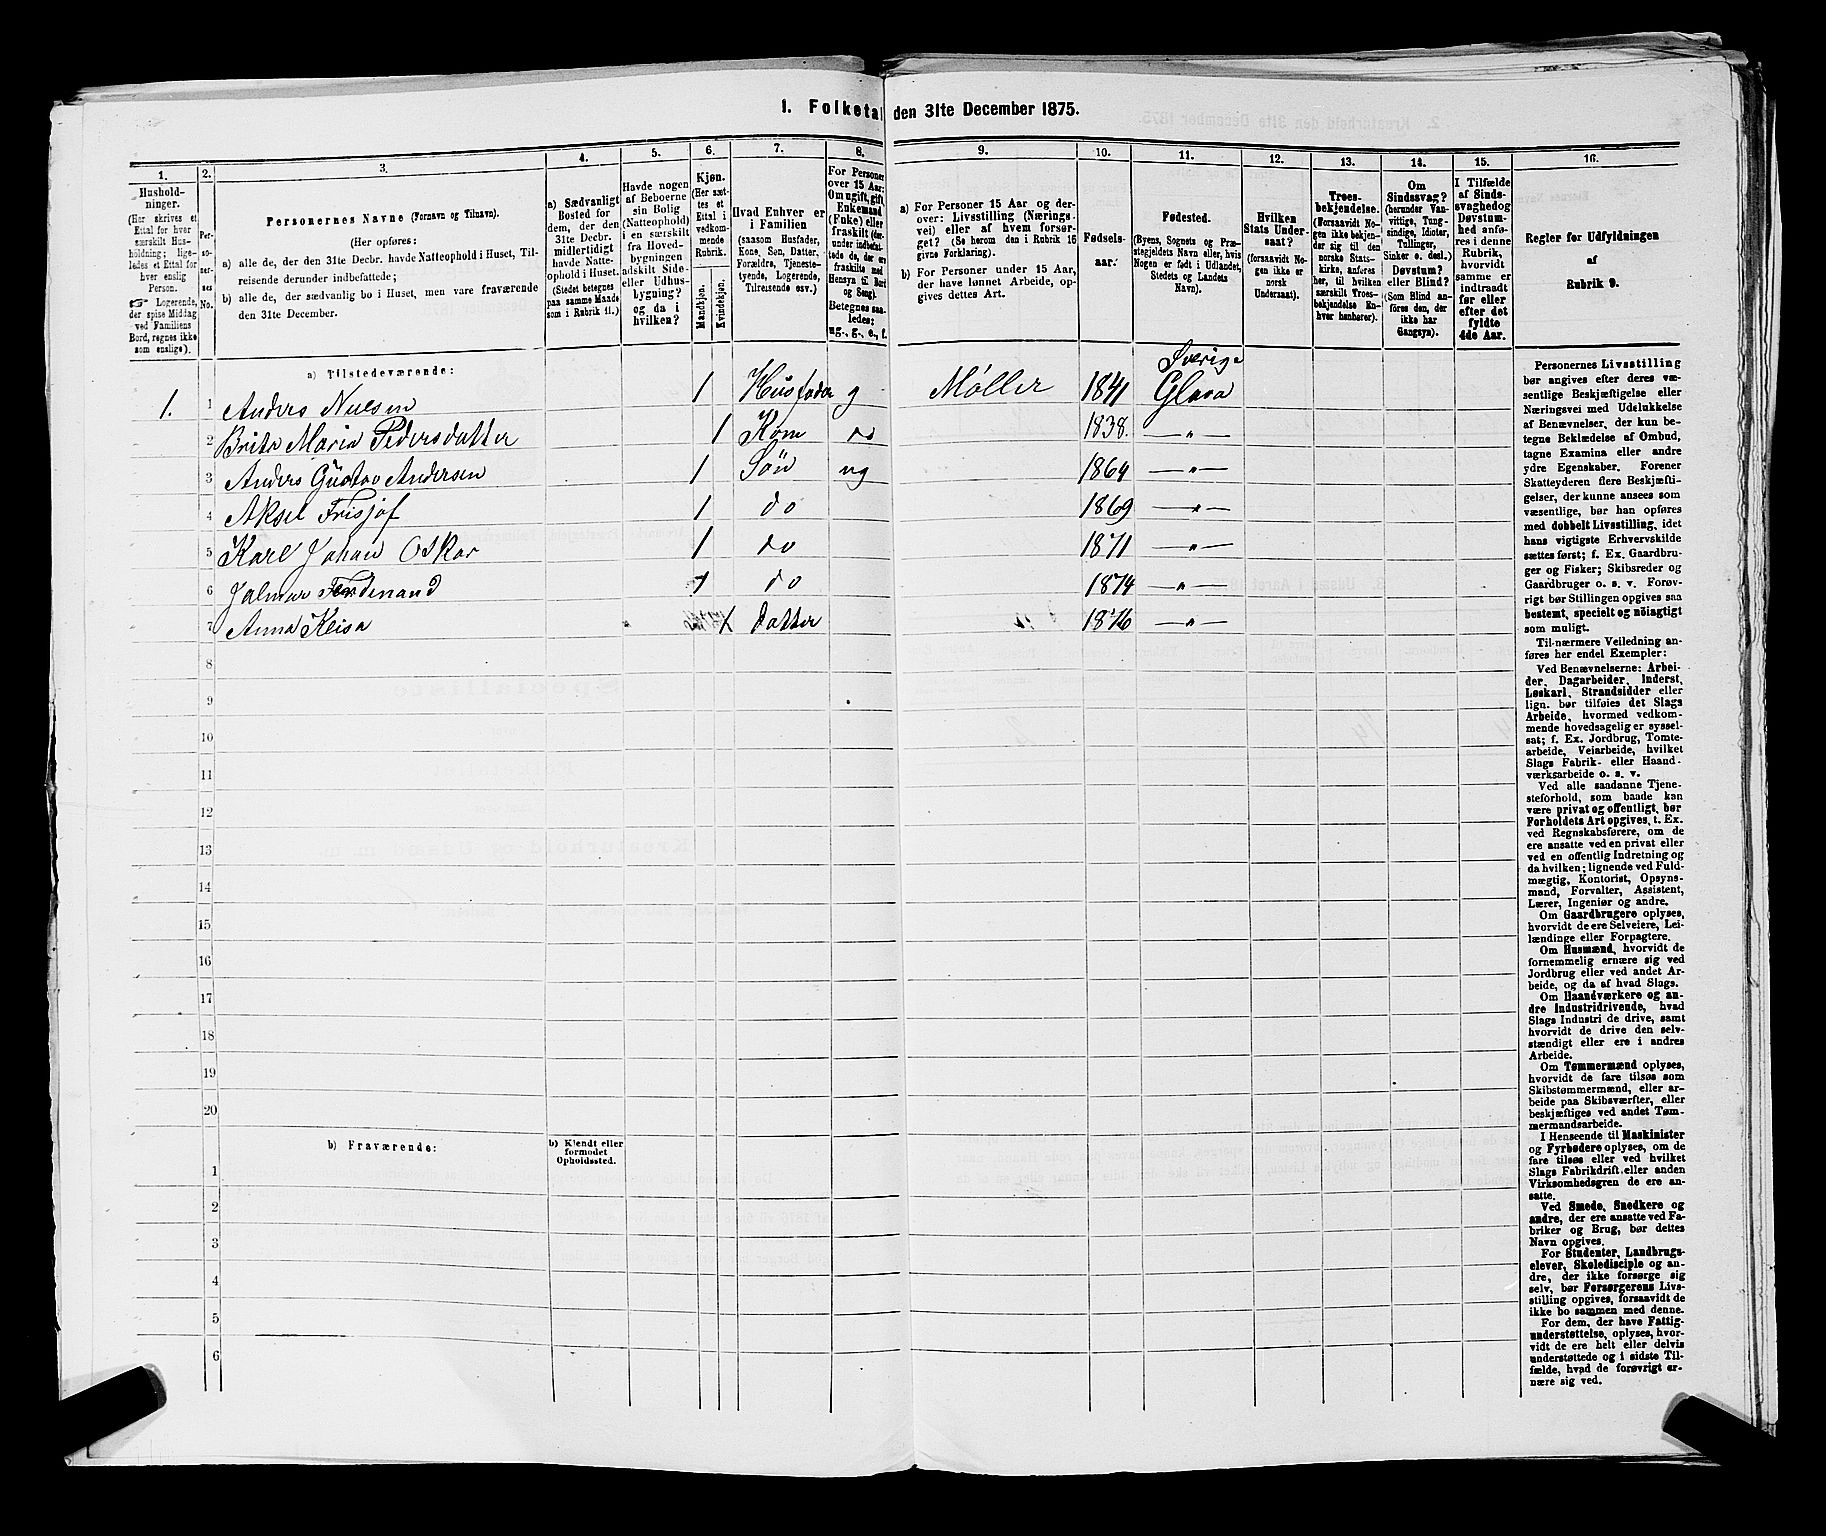 1. Folketal den 31te December 1875.
1.
Hushold-
ninger.
(Her skrives et
Ettal for hver
særskilt Hus-
holdning; lige-
ledes et Ettal for
hver enslig
Person.
☞ Logerende,
der spise Middag
ved Familiens
Bord, regnes ikke
som enslige).
2.
Per-
so-
ner-
nes
No.
3.
Personernes Navne (Fornavn og Tilnavn).
(Her opføres:
a) alle de, der den 31te Decbr. havde Natteophold i Huset, Til-
reisende derunder indbefattede;
b) alle de, der sædvanlig bo i Huset, men vare fraværende
den 31te December.
4.
a) Sædvanligt
Bosted for
dem, der den
31te Decbr.
midlertidigt
havde Natte-
ophold i Huset.
(Stedet betegnes
paa samme Maade
som i Rubrik 11.)
5.
Havde nogen
af Beboerne
sin Bolig
(Natteophold)
i en særskilt
fra Hoved-
bygningen
adskilt Side-
eller Udhus-
bygning?
og da i
hvilken?
6.
Kjøn.
(Her sæt-
tes et
Ettal i
vedkom-
mende
Rubrik.
Mandkjøn.
Kvindekjøn.
7.
Hvad Enhver er
i Familien
(saasom Husfader,
Kone, Søn, Datter,
Forældre, Tjeneste-
tyende, Logerende,
Tilreisende osv.)
8.
For Personer
over 15 Aar:
Om ugift, gift,
Enkemand
(Enke) eller
fraskilt (der-
under indbefat-
tede de, der ere
fraskilte med
Hensyn til Bord
og Seng).
Betegnes saa-
ledes:
ug., g., e., f.
9.
a) For Personer 15 Aar og der-
over: Livsstilling (Nærings-
vei) eller af hvem forsør-
get? (Se herom den i Rubrik 16
givne Forklaring).
b) For Personer under 15 Aar,
der have lønnet Arbeide, op-
gives dettes Art.
10.
Fødsels-
aar.
11.
Fødested.
(Byens, Sognets og Præ-
stegjeldets Navn eller, hvis
Nogen er født i Udlandet,
Stedets og Landets
Navn).
12.
Hvilken
Stats Under-
saat?
(forsaavidt No-
gen ikke er
norsk
Undersaat).
13.
Troes-
bekjendelse.
(Forsaavidt No-
gen ikke bekjen-
der sig til den
norske Stats-
kirke, anføres
her, til hvilken
særskilt Troes-
bekjendelse En-
hver henhører).
14.
Om
Sindssvag?
(herunder Van-
vittige, Tung-
sindige, Idioter,
Tullinger,
Sinker o. desl.)
Døvstum?
eller Blind?
(Som Blind an-
føres den, der
ikke har
Gangsyn).
15.
I Tilfælde
af Sinds-
svaghed og
Døvstum-
hed anfø-
res i denne
Rubrik,
hvorvidt
samme er
indtraadt
før eller
efter det
fyldte
4de Aar.
16.
Regler for Udfyldningen
af
Rubrik 9.
a) Tilstedeværende:
Sverige
1. 1 Anders Nielsen 1 Husfader g Møller 1841 Glava
2 Brita Maria Pedersdatter 1 Kone do 1838. —"—
3 Anders Gustav Andersen 1 Søn ug 1864 —"—
4 Aksel Frisjof 1 do 1869 —"—
5 Karl Johan Oskar 1 do 1871 —"—
6 Jalmar Ferdenand 1 do 1874 —"—
7 Anna Keisa 1 Datter 1876 —"—
8
9
10
11
12
13
14
15
16
17
18
19
20
b) Fraværende:
b) Kjendt eller
formodet
Opholdssted.
1
2
3
4
5
6
Personernes Livsstilling
bør angives efter deres væ-
sentlige Beskjæftigelse eller
Næringsvei med Udelukkelse
af Benævnelser, der kun be-
tegne Beklædelse af Ombud,
tagne Examina eller andre
ydre Egenskaber. Forener
Skatteyderen flere Beskjæfti-
gelser, der kunne ansees som
væsentlige, bør han opføres
med dobbelt Livsstilling, idet
hans vigtigste Erhvervskilde
sættes først; f. Ex. Gaardbru-
ger og Fisker; Skibsreder og
Gaardbruger o. s. v. Forøv-
rigt bør Stillingen opgives saa
bestemt, specielt og nöiagtigt
som muligt.
Til nærmere Veiledning an-
føres her endel Exempler:
Ved Benævnelserne: Arbei-
der, Dagarbeider, Inderst,
Løskarl, Strandsidder eller
lign. bør tilføies det Slags
Arbeide, hvormed vedkom-
mende hovedsagelig er syssel-
sat; f. Ex. Jordbrug, Tomte-
arbeide, Veiarbeide, hvilket
Slags Fabrik- eller Haand-
værksarbeide o. s. v.
Ved alle saadanne Tjene-
steforhold, som baade kan
være privat og offentligt, bør
Forholdets Art opgives, t. Ex.
ved Regnskabsførere, om de
ere ansatte ved en privat eller
ved en offentlig Indretning og
da hvilken; lignende ved Fuld-
mægtig, Kontorist, Opsyns-
mand, Forvalter, Assistent,
Lærer, Ingeniør og andre.
Om Gaardbrugere oplyses,
hvorvidt de ere Selveiere, Lei-
lændinge eller Forpagtere.
Om Husmænd, hvorvidt de
fornemmelig ernære sig ved
Jordbrug eller ved andet Ar-
beide, og da af hvad Slags.
Om Haandværkere og an-
dre Industridrivende, hvad
Slags Industri de drive, samt
hvorvidt de drive den selv-
stændigt eller ere i andres
Arbeide.
Om Tømmermænd oplyses,
hvorvidt de fare tilsøs som
Skibstømmermænd, eller ar-
beide paa Skibsværfter, eller
beskjæftiges ved andet Tøm-
mermandsarbeide.
I Henseende til Maskinister
og Fyrbødere oplyses, om de
fare tilsøs eller ved hvilket
Slags Fabrikdrift eller anden
Virksomhedsgren de ere an-
satte.
Ved Smede, Snedkere og
andre, der ere ansatte ved Fa-
briker og Brug, bør dettes
Navn opgives.
For Studenter, Landbrugs-
elever, Skoledisciple og an-
dre, der ikke forsørge sig
selv, bør Forsørgerens Livs-
stilling opgives, forsaavidt de
ikke bo sammen med denne.
For dem, der have Fattig-
understøttelse, oplyses, hvor-
vidt de ere helt eller delvis
understøttede og i sidste Til-
fælde, hvad de forøvrigt er-
nære sig ved.